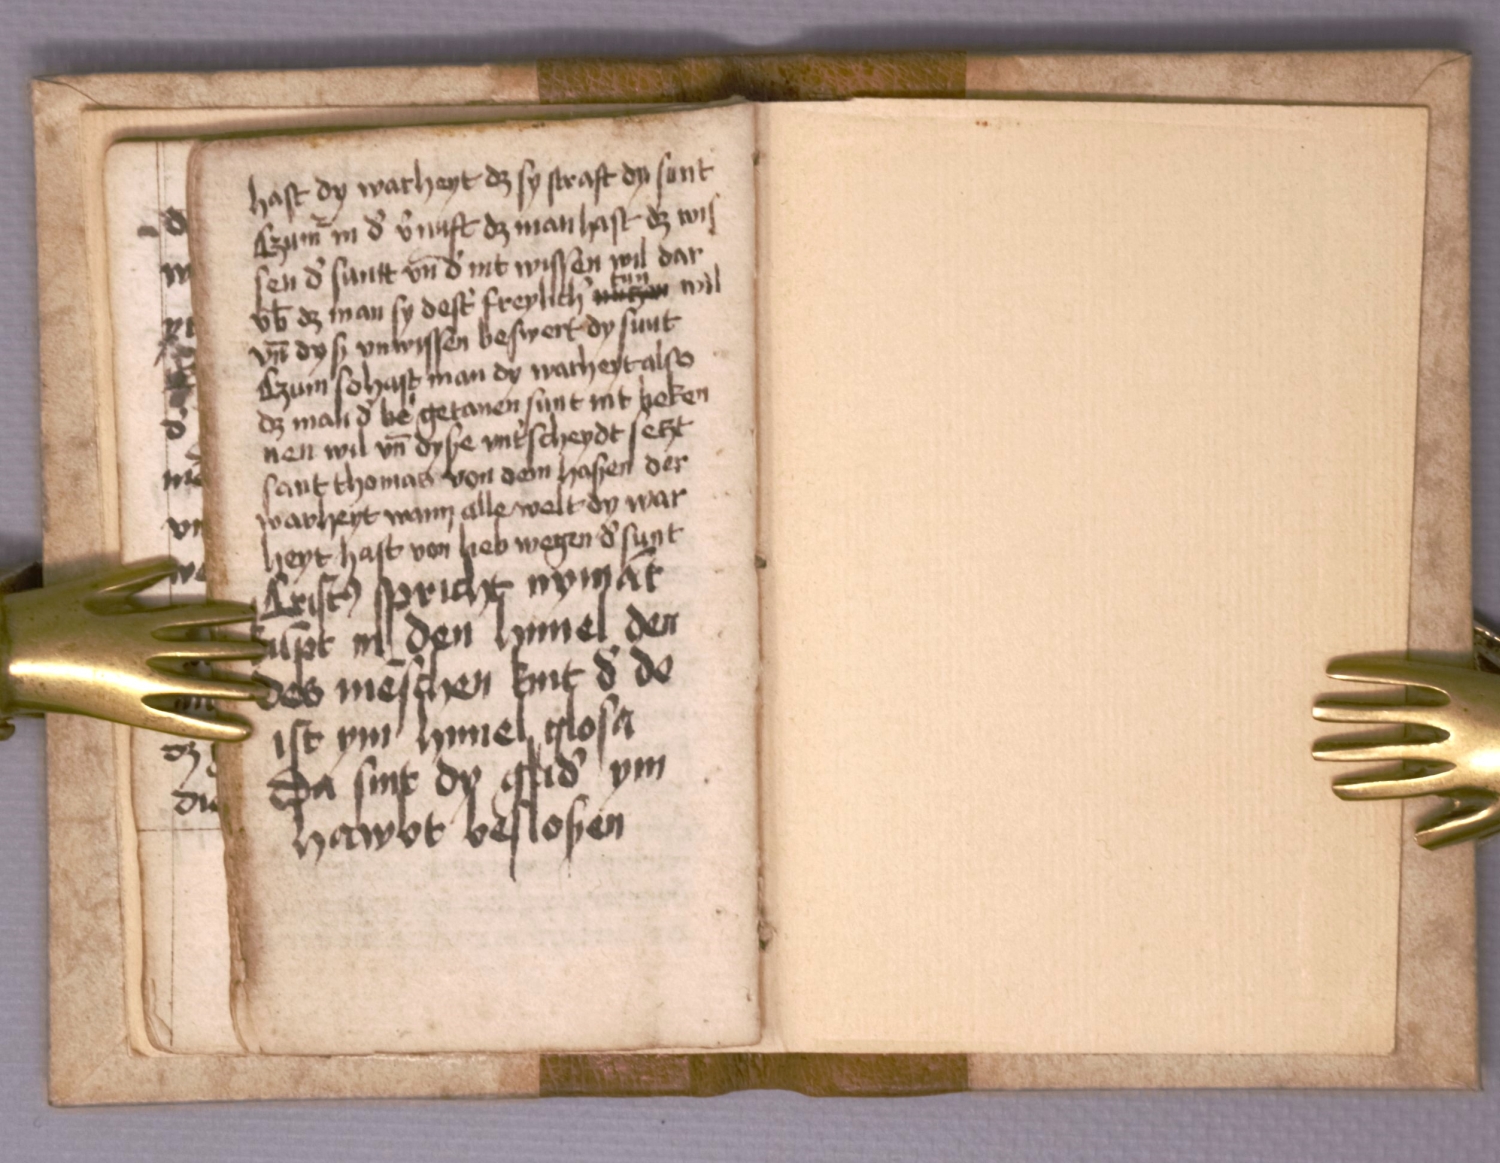 hast dy warheyt dz sy straft dy sunt
Czum̄ in d' v'nuft dz man hast dz wis
sen d' suntt vn̄ d' nit wissen wil dar
vb̄ dz man sy dest' freylich' tun will
vn̄ dyß vnwissen beswert dy sunt
Czum so hast man dy warheyt also
dz man d' be' getanen sunt nit beken
nen wil vn̄ dyße vnt'scheydt seczt
sant thomas von dem haßen der
warheyt wann alle welt dy war
heyt hast von lieb wegen d' sunt
Crist9 spricht nymāt
kūpt in den himel den
des mēschen kint d' do
ist ym himel glosa
Da sint dy glid' ym
hawbt besloßen